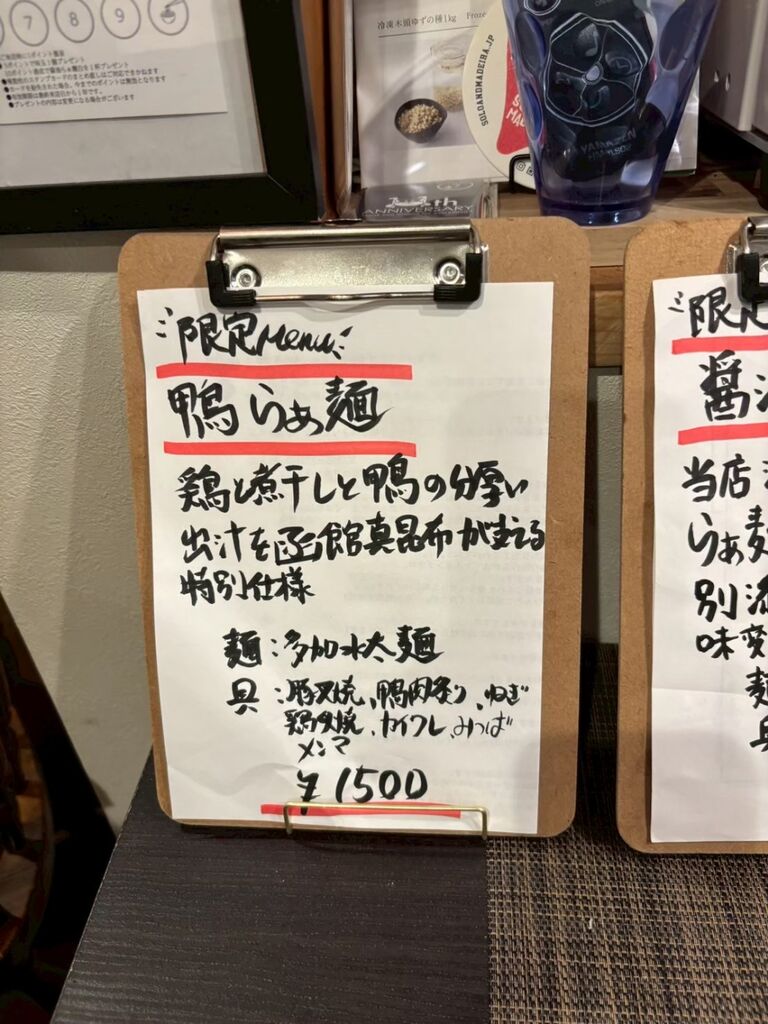 7 8 9
冷凍木頭ゆずの種1kg Froze
SOLOANDMADEIRA.JP
YAMAZEN
ANNIVERSARY
限定Menu
鴨らぁ麺
鶏と煮干しと鴨の分厚い
出汁を函館真昆布が支える
特別仕様
麺:多加水太麺
具:豚叉焼、鴨肉炙り、ねぎ
鶏叉焼、カイワレ、みつば
メンマ
¥1500
限定
醤
当店
らぁ麺
別
味変
麺
具